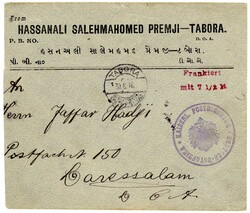 From
HASSANALI SALEHMAHOMED PREMJI—TABORA.
P. B. NO. D.O.A.
હસનઅલી સાલેમહમદ પ્રેમજી—ટબોરા.
પી. બી. ના૦
TABORA
Frankiert
mit 7 1/2 H
An
Herrn Jaffar Hadji
Postfach No 150
Daressalam
D O A